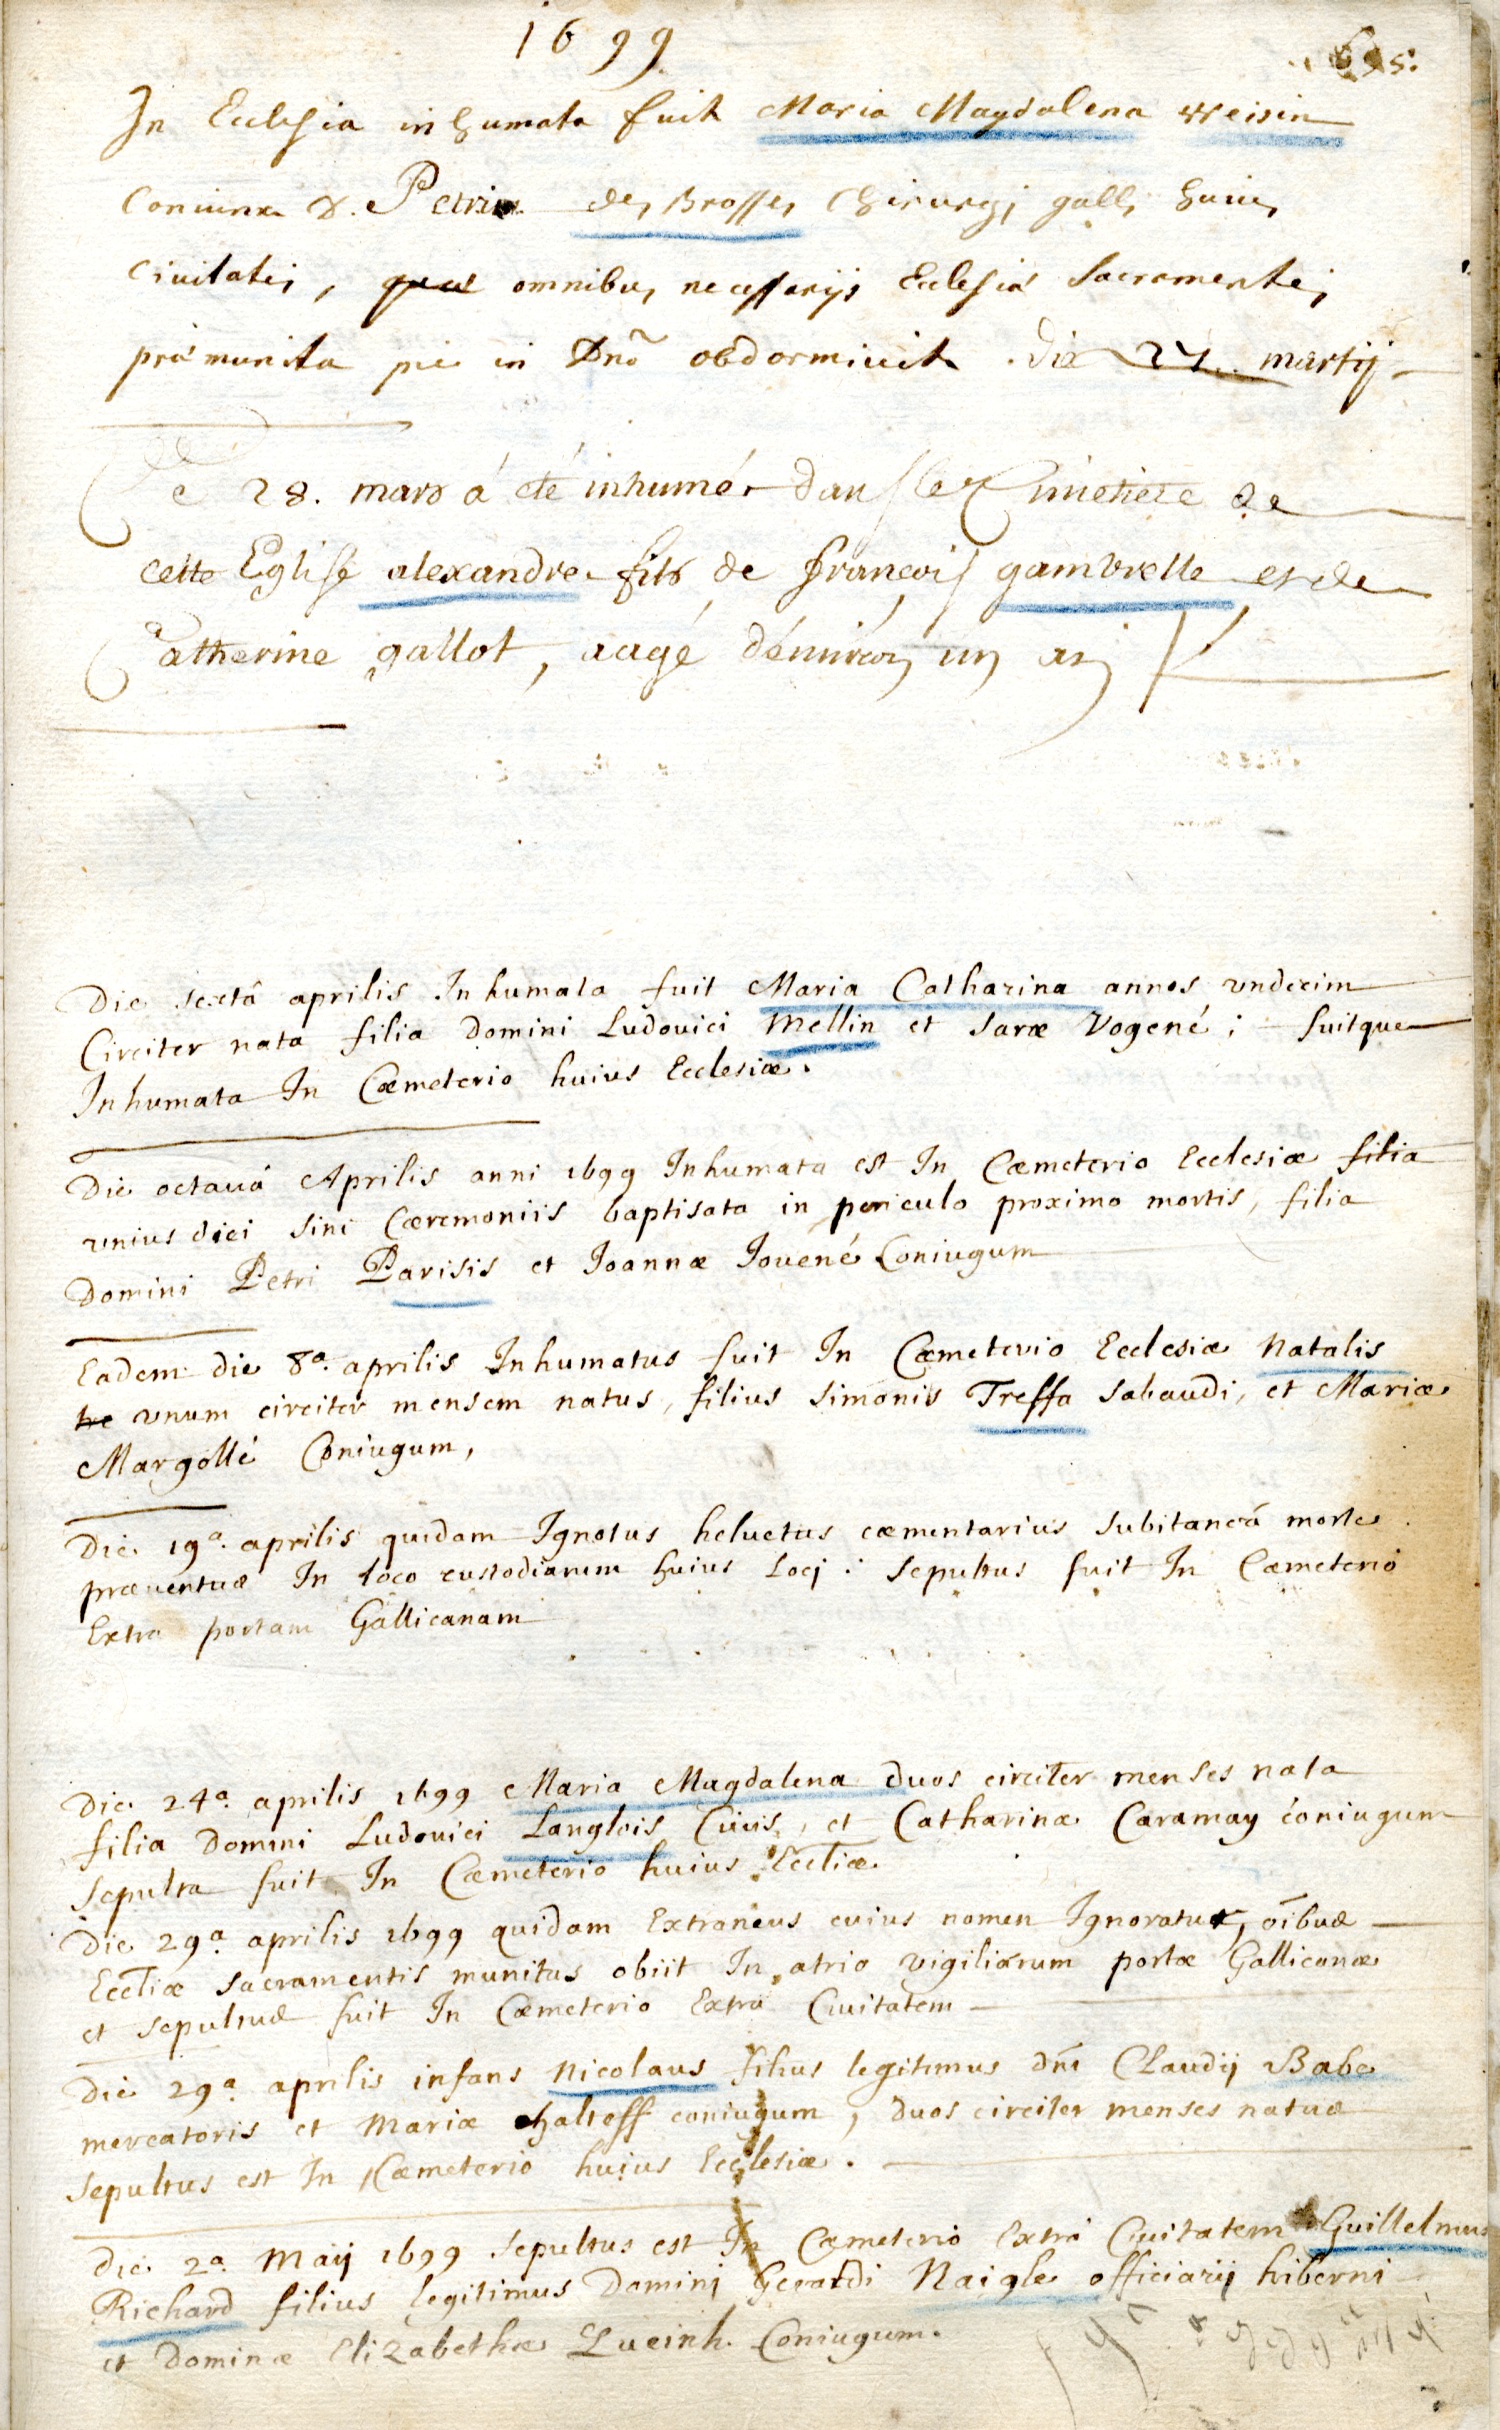 1699
In Ecclesia inhumata fuit Maria Magdalena Weisin
Coniunx D. Petri des Brosses Chirurgi gall, huius
Ciuitatis, quae omnibus necessarijs Ecclesiæ Sacramentis
præmunita pie in Dnõ obdormiuit. die 27. martij
Le 28. mars á eté inhumé dans le Cimetiere de
cette Eglise alexandre fils de francois gambrelle et de
Catherine gallot, aagé dénuiron un an
Die sextâ aprilis Inhumata fuit Maria Catharina annos vndecim
Circiter nata filia Domini Ludouici Mellin et Saræ Vogené; fuitque
Inhumata In Cœmeterio huius Ecclesiæ.
Die octauâ Aprilis anni 1699 Inhumata est In Cœmeterio Ecclesiæ filia
vnius diei sine Cæremoniis baptisata in periculo proximo mortis, filia
Domini Petri Parisis et Joannæ Jouené Coniugum
Eadem die 8a. aprilis Inhumatus fuit In Cœmeterio Ecclesiæ Natalis
tre vnum circiter mensem natus, filius Simonis Treffa Sabaudi, et Mariæ
Margollé Coniugum,
Die 19a. aprilis quidam Ignotus heluetus cæmentarius Subitaneâ morte
præuentus In loco custodiarum huius Loci: Sepultus fuit In Cœmeterio
Extra portam Gallicanam
Die 24a. aprilis 1699 Maria Magdalena duos circiter menses nata
filia Domini Ludouici Langlois Ciuis, et Catharinæ Caramay coniugum
Sepulta fuit In Cœmeterio huius Eccliæ.
Die 29a. aprilis 1699 quidam Extraneus cuius nomen Ignoratur, oĩbus
Eccliæ Sacramentis munitus obiit In atrio vigiliarum portæ Gallicanæ
et Sepultus fuit In Cœmeterio Extra Ciuitatem
Die 29a. aprilis infans Nicolaus filius legitimus dñi Claudij Babe
mercatoris et Mariæ Halteff coniugum, duos circiter menses natus
Sepultus est In Cœmeterio huius Ecclesiæ.
Die 2a. Maij 1699 Sepultus est In Cœmeterio Extra Ciuitatem Guillelmus
Richard filius legitimus Domini Gerardi Naigle officiarij hiberni
et Dominæ Elizabethæ Lueinh Coniugum.